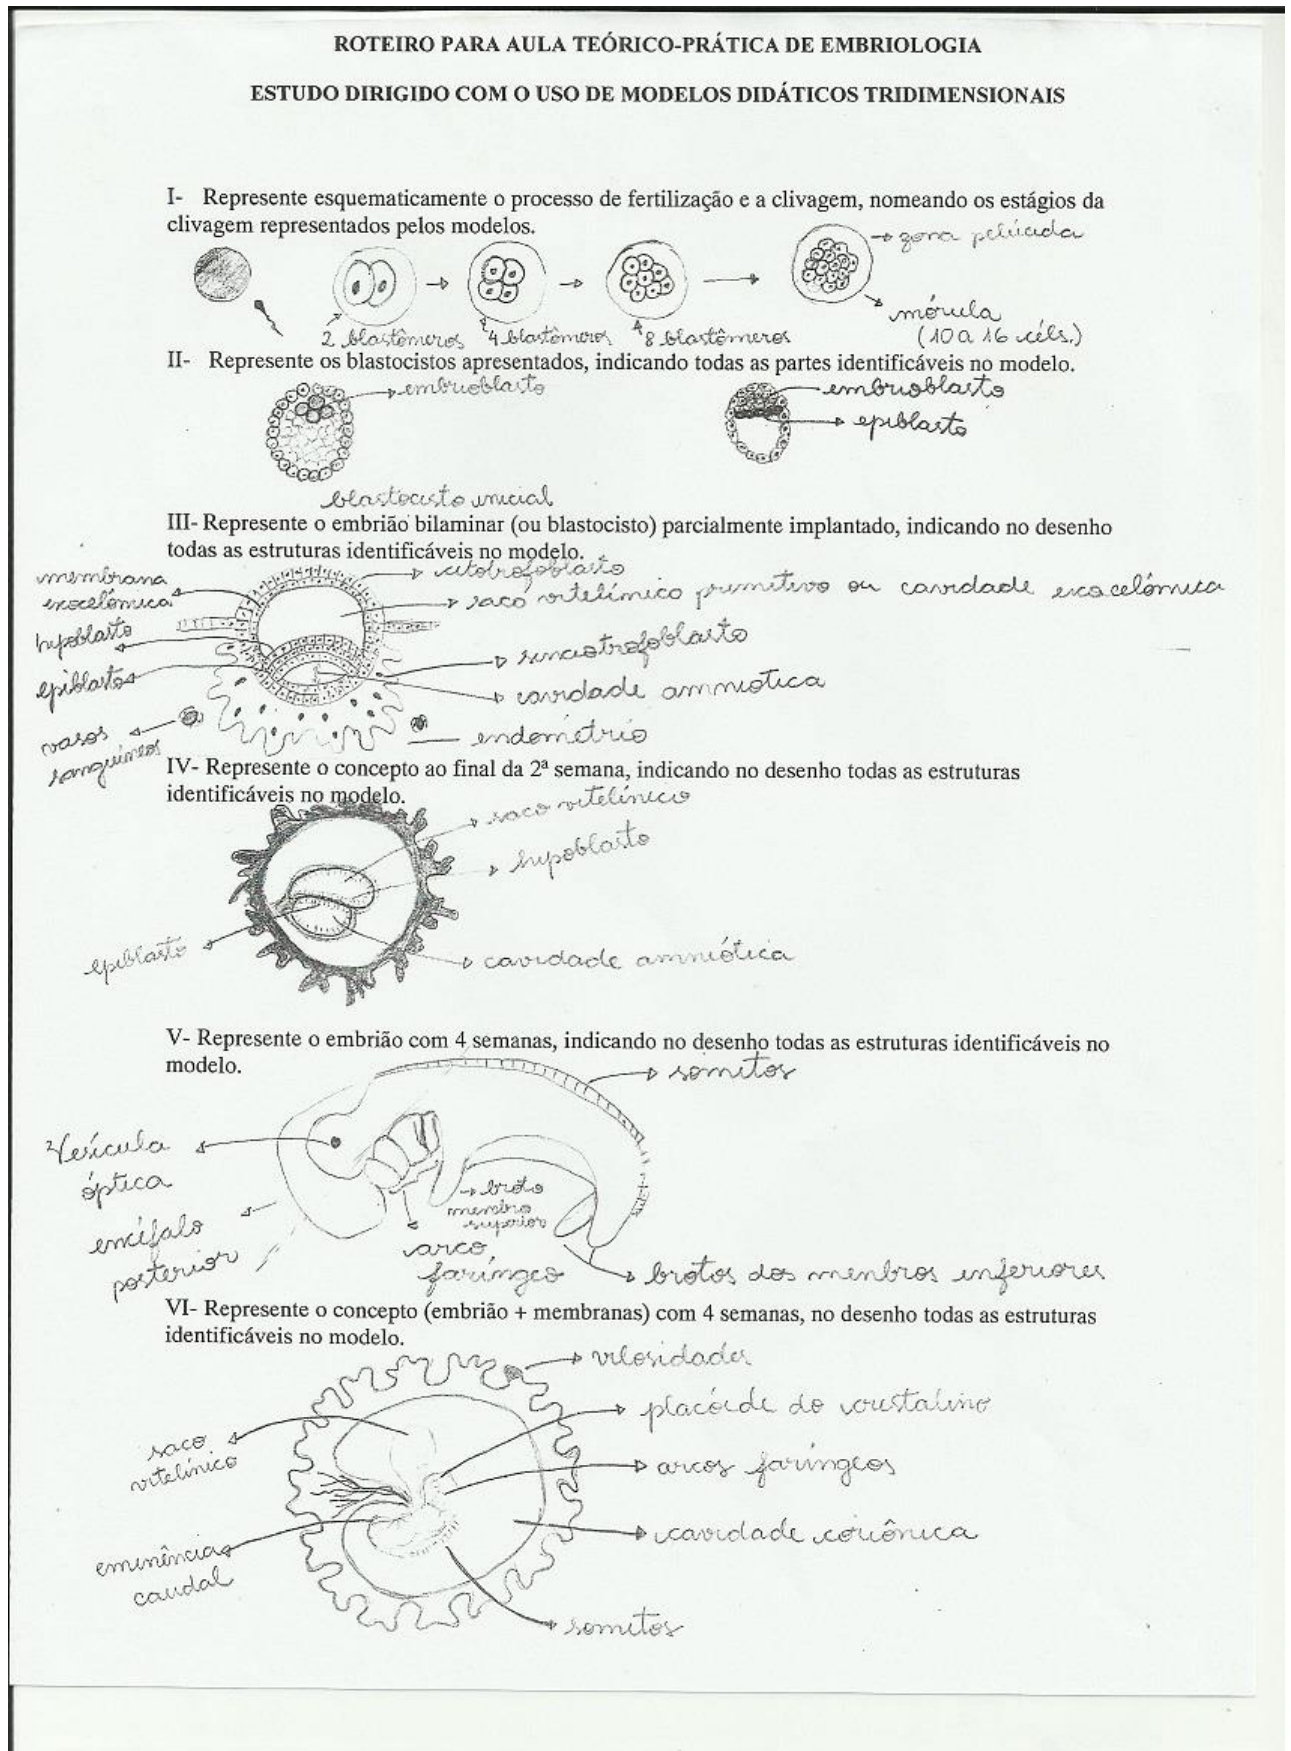 ROTEIRO PARA AULA TEÓRICO-PRÁTICA DE EMBRIOLOGIA
ESTUDO DIRIGIDO COM O USO DE MODELOS DIDÁTICOS TRIDIMENSIONAIS
I- Represente esquematicamente o processo de fertilização e a clivagem, nomeando os estágios da
clivagem representados pelos modelos.
zona pelúcida
mórula
(10 a 16 céls.)
2 blastômeros
4 blastômeros
8 blastômeros
II- Represente os blastocistos apresentados, indicando todas as partes identificáveis no modelo.
embrioblasto
embrioblasto
epiblasto
blastocisto inicial
III- Represente o embrião bilaminar (ou blastocisto) parcialmente implantado, indicando no desenho
todas as estruturas identificáveis no modelo.
membrana
exocelômica
hipoblasto
epiblasto
vasos
sanguíneos
citotrofoblasto
saco vitelínico primitivo ou cavidade exocelômica
sinciotrofoblasto
cavidade amniótica
endométrio
IV- Represente o concepto ao final da 2ª semana, indicando no desenho todas as estruturas
identificáveis no modelo.
saco vitelínico
hipoblasto
epiblasto
cavidade amniótica
V- Represente o embrião com 4 semanas, indicando no desenho todas as estruturas identificáveis no
modelo.
somitos
Vesícula
óptica
encéfalo
posterior
broto
membro
superior
arco
faríngeo
brotos dos menbros inferiores
VI- Represente o concepto (embrião + membranas) com 4 semanas, no desenho todas as estruturas
identificáveis no modelo.
vilosidades
placóide do cristalino
saco
vitelínico
arcos faríngeos
cavidade coriônica
eminência
caudal
somitos